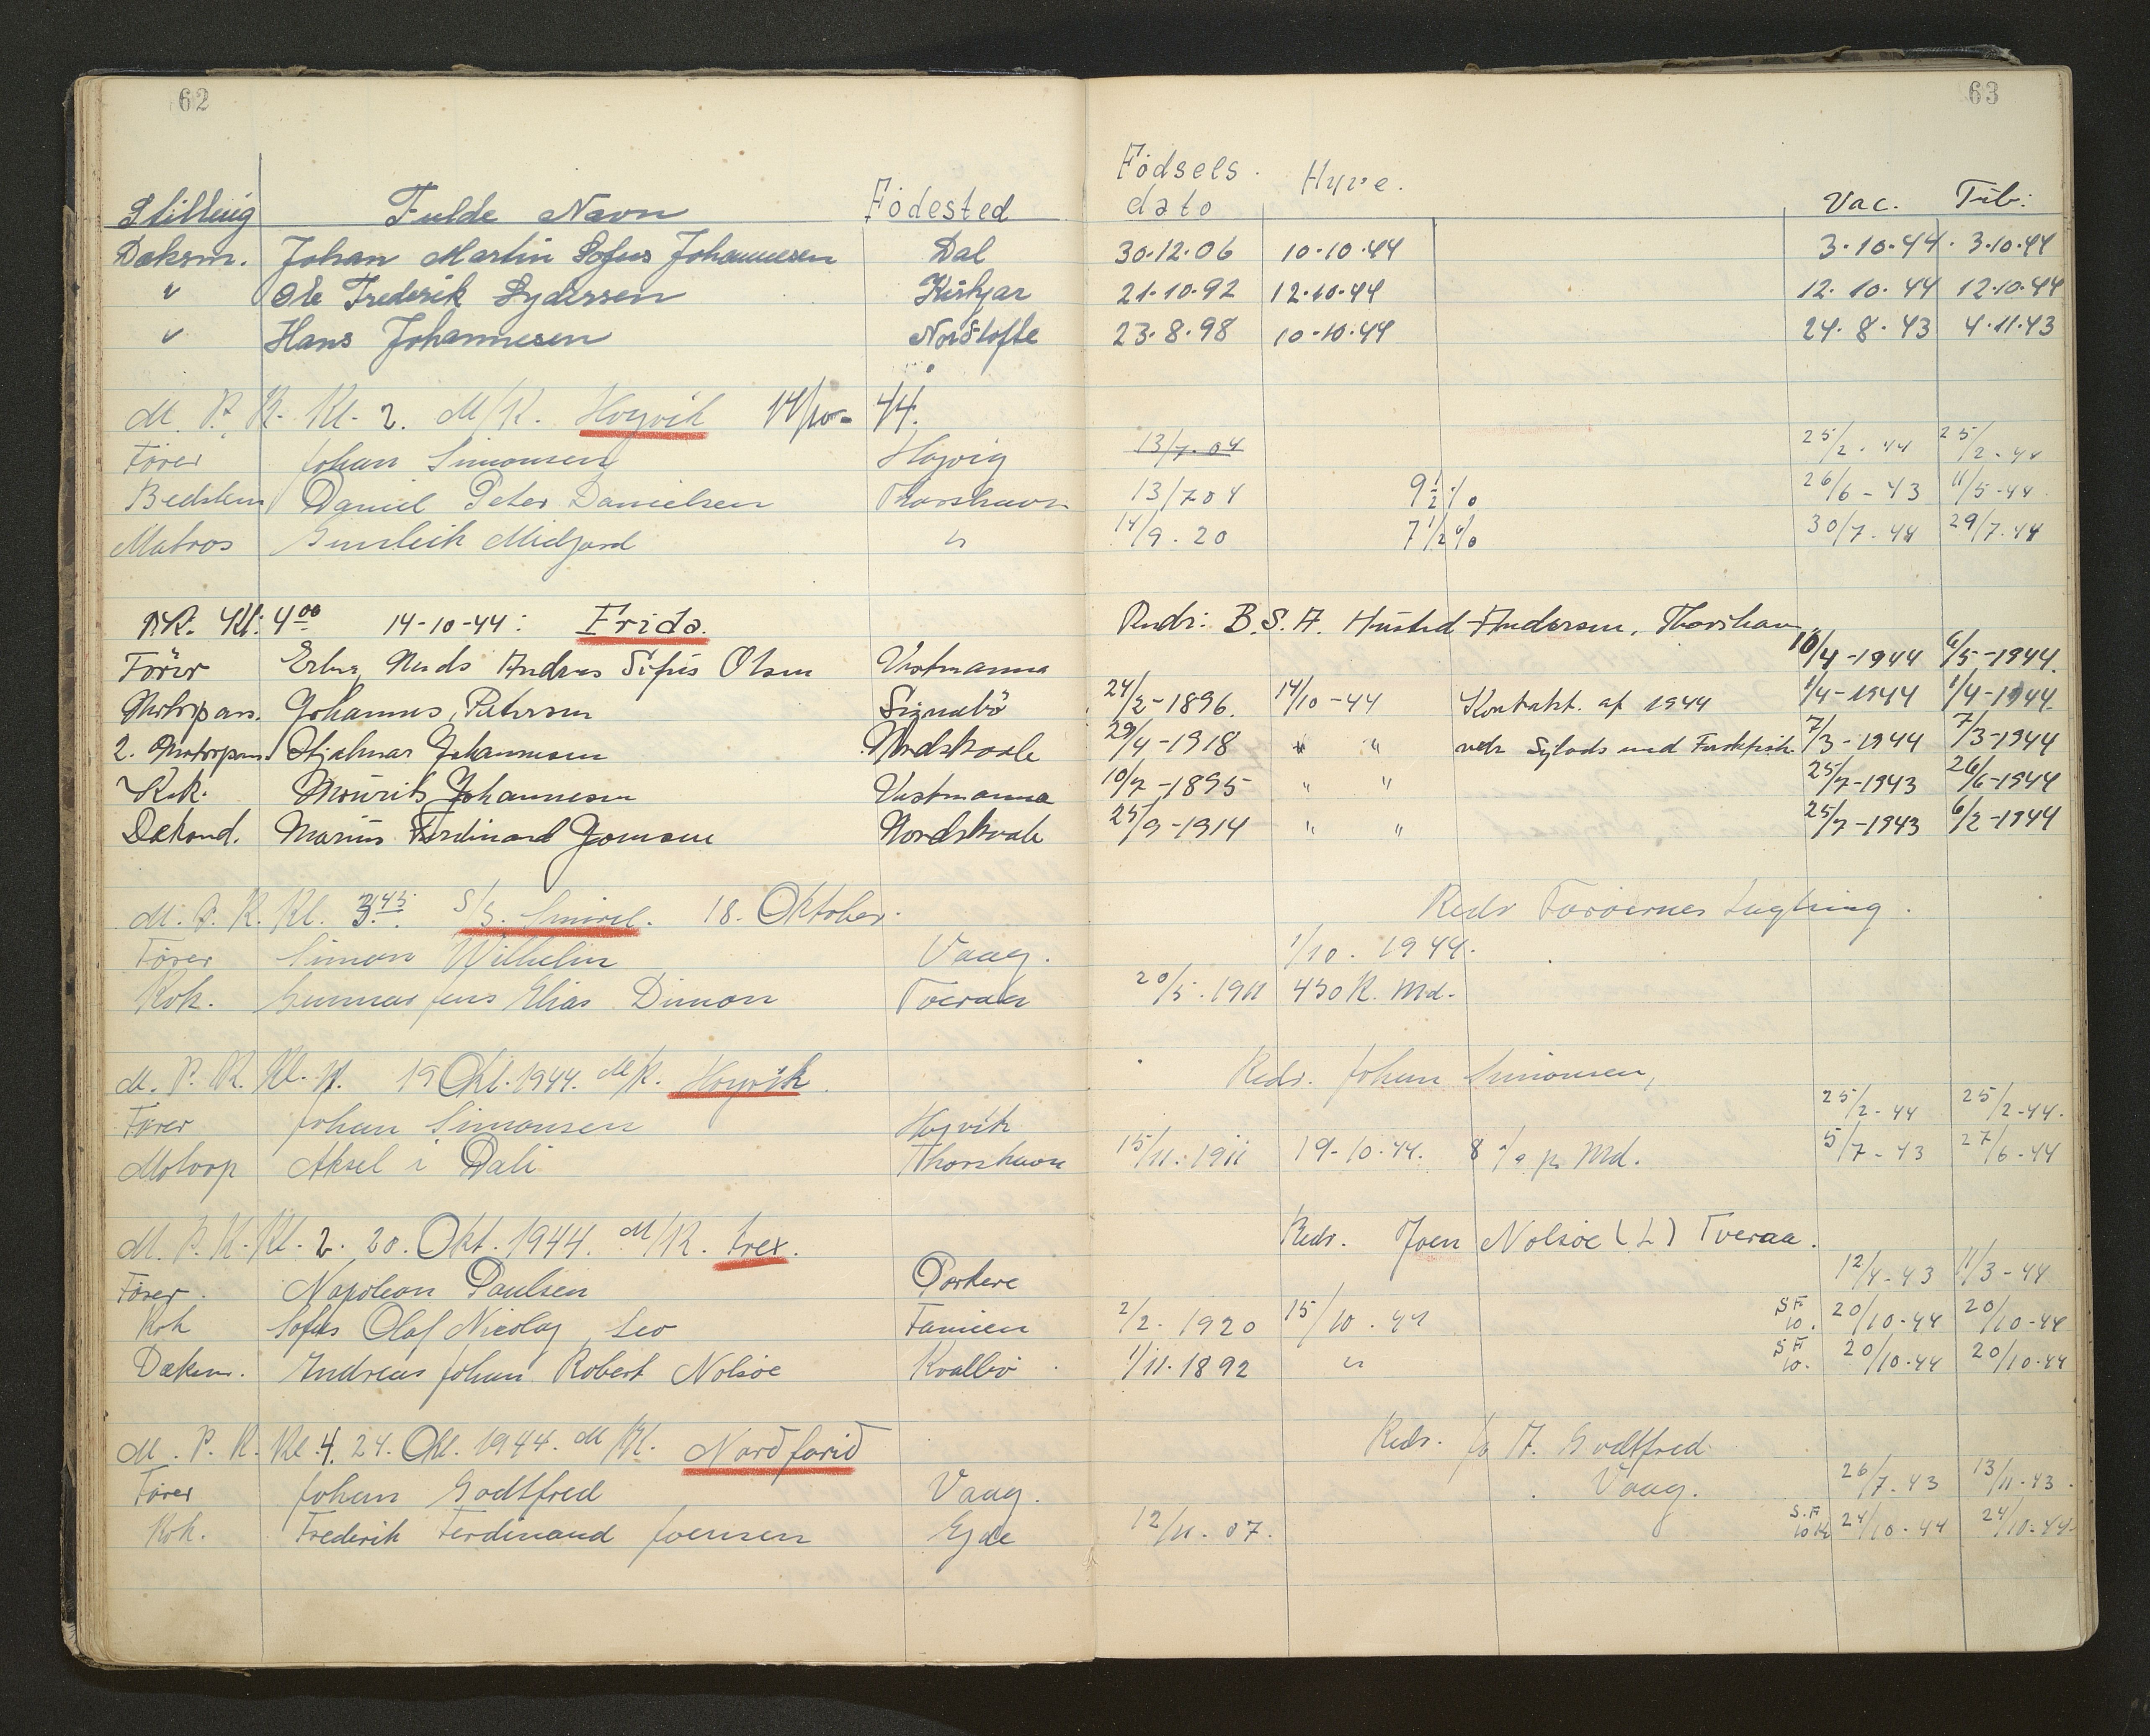 62
63
Stilling Fulde Navn Födested Födsels dato Hyre. Vac. Tub:
Daksm. Johan Martin Sofus Johannesen Dal 30.12.06 10.10.44 3.10.44. 3.10.44
" Ole Frederik Sydersen Kirkjar 21.10.92 12.10.44 12.10.44 12.10.44
" Hans Johannesen Nordtofte 23.8.98 10.10.44 24.8.43 4.11.43
M. P. K. Kl. 2. M/K. Hoyvik 14/10- 44.
Förer Johan Simonsen Hoyvig 13/7.04 25/2.44 25/2.44
Bedstem Daniel Peter Danielsen Thorshavn 13/7 04 9 1/2 % 26/6-43 11/5-44
Matros Sunleik Midjord " 14/9.20 7 1/2 % 30/7.44 29/7.44
Kl. 4 00 14-10-44: Frida. Redr: B.S.A. Husted-Andersen, Thorshavn
Förer Andreas Sofus Olsen Vestmanna 10/4-1944 6/5-1944.
Motorpas. Johannes Petersen Signabö 24/2-1896. 14/10-44 Kontrakt. af 1944 1/4-1944 1/4-1944.
2. Motorpas. Hjalmar Johannesen Nordskaale 29/4-1918 " " vedr 7/3-1944 7/3-1944
Kok. Mourits Johannesen Vestmanna 10/7-1895 " " 25/7-1943 26/6-1944
Dekand. Marius Ferdinand Joensen Nordskaale 25/9-1914 " " 25/7-1943 6/2-1944
M. P. K. Kl. 3.45 S/S. Smiril. 18. Oktober. Redr Faröernes Lagting.
Förer Simon Wilhelm Vaag. 1/10. 1944.
Kok. Gunnar Jens Elias Dimon Tveraa 20/5.1911 430 K. Md.
M. P. K. Kl. 11. 19 Okt. 1944. M/K. Hoyvik. Redr. Johan Simonsen,
Förer Johan Simonsen Hoyvik 25/2-44 25/2-44.
Motorp Aksel i Dali Thorshavn 15/11.1911 19-10.44. 8 % pr Md. 5/7-43 27/6-44
M. P. K. Kl. 2. 20. Okt. 1944. M/K. trex. Redr. Joen Nolsöe (L) Tveraa.
Förer. Napoleon Paulsen Porkere 12/4-43 11/3-44
Kok Sofus Olaf Nicolay Leo Famien 2/2. 1920 15/10.44 SF 10. 20/10-44 20/10-44
Dæksm. Andreas Johan Robert Nolsöe Kvalbö 1/11.1892 " SF 10. 20/10.44 20/10.44
M. P. K. Kl. 4. 24. Okt. 1944. M/K. Nordfarid Redr. A. Godtfred
Förer Johan Godtfred Vaag. Vaag. 26/7.43 13/11-43.
Kok. Frederik Ferdinand Joensen Ejde 12/11.07. S.F 10 Kr 24/10-44 24/10-44.